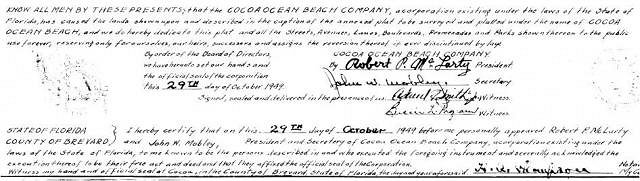 KNOW ALL MEN BY THESE PRESENTS; that the COCOA OCEAN BEACH COMPANY, a corporation existing under the laws of the State of
Florida, has caused the lands shown upon and described in the caption of the annexed plat to be surveyed and platted under the name of COCOA
OCEAN BEACH, and we do hereby dedicate this plat and all the Streets, Avenues, Lanes, Boulevards, Promenades and Parks shown thereon to the public
use forever, reserving only for ourselves, our heirs, successors and assigns the reversion thereof if ever discontinued by law.
By order of the Board of Directors, COCOA OCEAN BEACH COMPANY
we have hereto set our hands and By Robert P. McLarty President
the official seal of the corporation John W. Mobley Secretary
this 29TH day of October 1949
Signed, sealed and delivered in the presence of us Witness
Witness
STATE OF FLORIDA I hereby certify that on this 29TH day of October 1949 before me personally appeared Robert P. McLarty
COUNTY OF BREVARD and John W. Mobley, President and Secretary of Cocoa Ocean Beach Company, a corporation existing under the
laws of the State of Florida, to me known to be the persons described in and who executed the foregoing instrument and severally acknowledged the
execution thereof to be their free act and deed and that they affixed the official seal of the Corporation.
Witness my hand and official seal at Cocoa, in the County of Brevard, State of Florida, the day and year aforesaid